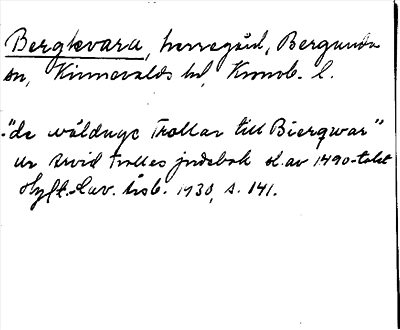 Bergkvara, herregård, Bergunda
sn, Kinnevalds hd, Kronob. l.
"de wälduge Trollar till Biergwar"
ur Arvid Trolles jordebok sl. av 1490-talet
Hylt.-Cav. årsb. 1930, s. 141.